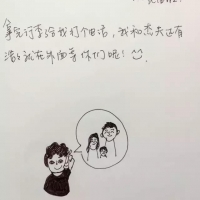 拿完行李给我打个电话，我和杰夫还有
浩浩就在外面等你们呢！